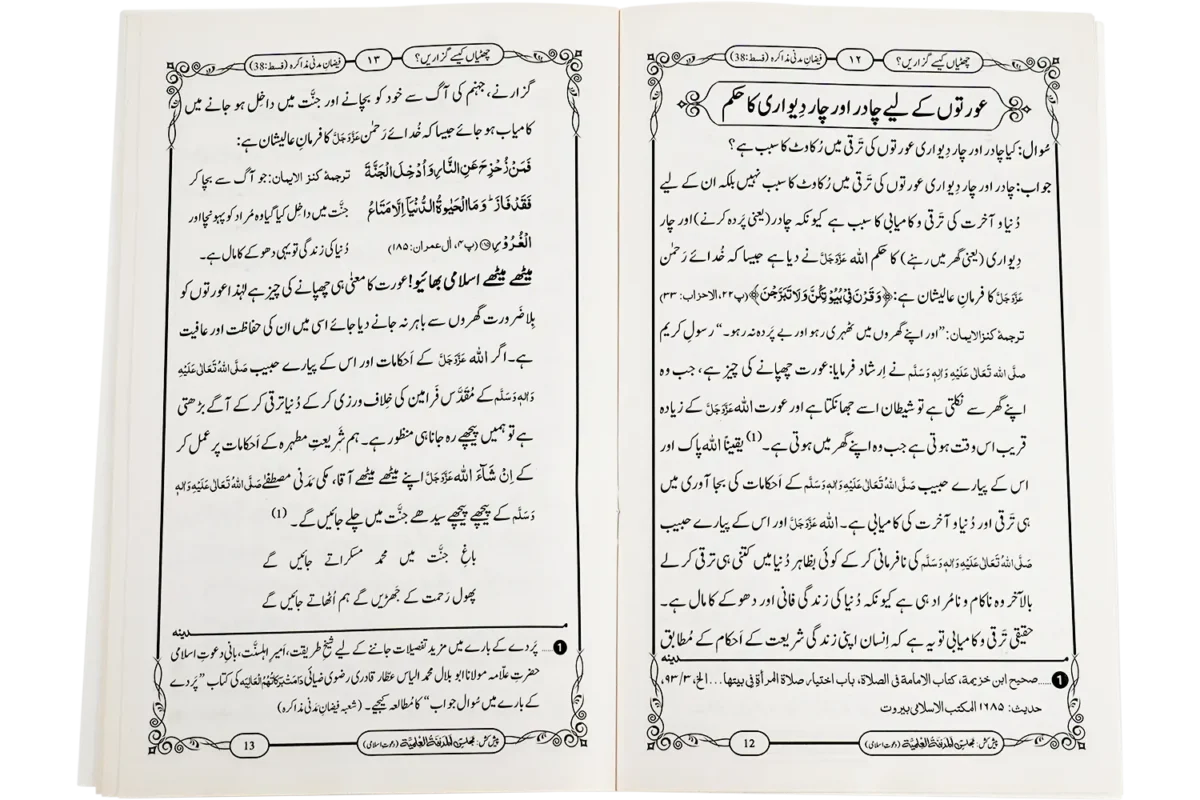 چھٹیاں کیسے گزاریں؟
۱۲
فیضانِ مدنی مذاکرہ (قسط:38)
عورتوں کے لیے چادر اور چار دِیواری کا حکم
سُوال: کیا چادر اور چار دِیواری عورتوں کی تَرقی میں رُکاوٹ کا سبب ہے؟
جواب: چادر اور چار دِیواری عورتوں کی تَرقی میں رُکاوٹ کا سبب نہیں بلکہ ان کے لیے
دُنیا و آخرت کی تَرقی و کامیابی کا سبب ہے کیونکہ چادر (یعنی پَردہ کرنے) اور چار
دِیواری (یعنی گھر میں رہنے) کا حکم اللہ عَزَّوَجَلَّ نے دیا ہے جیسا کہ خُدائے رَحمٰن
عَزَّوَجَلَّ کا فرمانِ عالیشان ہے: ﴿وَ قَرْنَ فِیْ بُیُوْتِكُنَّ وَ لَا تَبَرَّجْنَ﴾ (پ۲۲، الاحزاب: ۳۳)
ترجمۂ کنز الایمان: ”اور اپنے گھروں میں ٹھہری رہو اور بے پَردہ نہ رہو۔“ رسولِ کریم
صلَّی اللہ تَعَالٰی عَلَیْہِ وَاٰلِہٖ وَسَلَّم نے اِرشاد فرمایا: عورت چھپانے کی چیز ہے، جب وہ
اپنے گھر سے نکلتی ہے تو شیطان اسے جھانکتا ہے اور عورت اللہ عَزَّوَجَلَّ کے زیادہ
قریب اس وقت ہوتی ہے جب وہ اپنے گھر میں ہوتی ہے۔ (1) یقیناً اللہ پاک اور
اس کے پیارے حبیب صَلَّی اللہُ تَعَالٰی عَلَیْہِ وَاٰلِہٖ وَسَلَّم کے اَحکامات کی بجا آوری میں
ہی تَرقی اور دُنیا و آخرت کی کامیابی ہے۔ اللہ عَزَّوَجَلَّ اور اس کے پیارے حبیب
صَلَّی اللہُ تَعَالٰی عَلَیْہِ وَاٰلِہٖ وَسَلَّم کی نافرمانی کر کے کوئی بظاہر دُنیا میں کتنی ہی ترقی کر لے
بالآخر وہ ناکام و نامُراد ہی ہے کیونکہ دُنیا کی زندگی فانی اور دھوکے کا مال ہے۔
حقیقی تَرقی و کامیابی تو یہ ہے کہ اِنسان اپنی زندگی شریعت کے اَحکام کے مُطابق
مدینہ
1.....صحیح ابن خزیمة، کتاب الامامة فی الصلاة، باب اختیار صلاة المرأة فی بیتھا... الخ، ۳/۹۳،
حدیث: ۱۶۸۵ المکتب الاسلامی بیروت
12
پیش کش: مجلس المدینة العلمیة (دعوتِ اسلامی)
چھٹیاں کیسے گزاریں؟
۱۳
فیضانِ مدنی مذاکرہ (قسط:38)
گزارنے، جہنم کی آگ سے خود کو بچانے اور جنَّت میں داخِل ہو جانے میں
کامیاب ہو جائے جیسا کہ خُدائے رَحمٰن عَزَّوَجَلَّ کا فرمانِ عالیشان ہے:
فَمَنْ زُحْزِحَ عَنِ النَّارِ وَ اُدْخِلَ الْجَنَّةَ ترجمۂ کنز الایمان: جو آگ سے بچا کر
فَقَدْ فَازَ ؕ وَ مَا الْحَیٰوةُ الدُّنْیَاۤ اِلَّا مَتَاعُ جنَّت میں داخِل کیا گیا وہ مُراد کو پہونچا اور
الْغُرُوْرِ ﴿۱۸۵﴾ (پ۴، اٰل عمران: ۱۸۵) دُنیا کی زندگی تو یہی دھوکے کا مال ہے۔
میٹھے میٹھے اسلامی بھائیو! عورت کا معنٰی ہی چھپانے کی چیز ہے لہٰذا عورتوں کو
بِلا ضَرورت گھروں سے باہر نہ جانے دیا جائے اسی میں ان کی حفاظت اور عافیت
ہے۔ اگر اللہ عَزَّوَجَلَّ کے اَحکامات اور اس کے پیارے حبیب صَلَّی اللہُ تَعَالٰی عَلَیْہِ
وَاٰلِہٖ وَسَلَّم کے مُقَدَّس فَرامین کی خِلاف ورزی کر کے دُنیا ترقی کر کے آگے بڑھتی
ہے تو ہمیں پیچھے رہ جانا ہی منظور ہے۔ ہم شَریعتِ مطہرہ کے اَحکامات پر عمل کر
کے اِنْ شَآءَ اللہ عَزَّوَجَلَّ اپنے میٹھے میٹھے آقا، مکی مَدَنی مصطفےٰ صَلَّی اللہُ تَعَالٰی عَلَیْہِ وَاٰلِہٖ
وَسَلَّم کے پیچھے پیچھے سیدھے جنَّت میں چلے جائیں گے۔ (1)
باغِ جنَّت میں محمد مسکراتے جائیں گے
پھول رَحمت کے جَھڑیں گے ہم اُٹھاتے جائیں گے
مدینہ
1..... پَردے کے بارے میں مزید تفصیلات جاننے کے لیے شیخِ طریقت، اَمیرِ اہلسنَّت، بانیِ دعوتِ اسلامی
حضرتِ علّامہ مولانا ابو بلال محمد الیاس عطّار قادری رضوی ضیائی دَامَتْ بَرَکَاتُہُمُ الْعَالِیَہ کی کتاب ”پَردے
کے بارے میں سُوال جواب“ کا مُطالعہ کیجیے۔ (شعبہ فیضانِ مَدَنی مذاکرہ)
13
پیش کش: مجلس المدینة العلمیة (دعوتِ اسلامی)